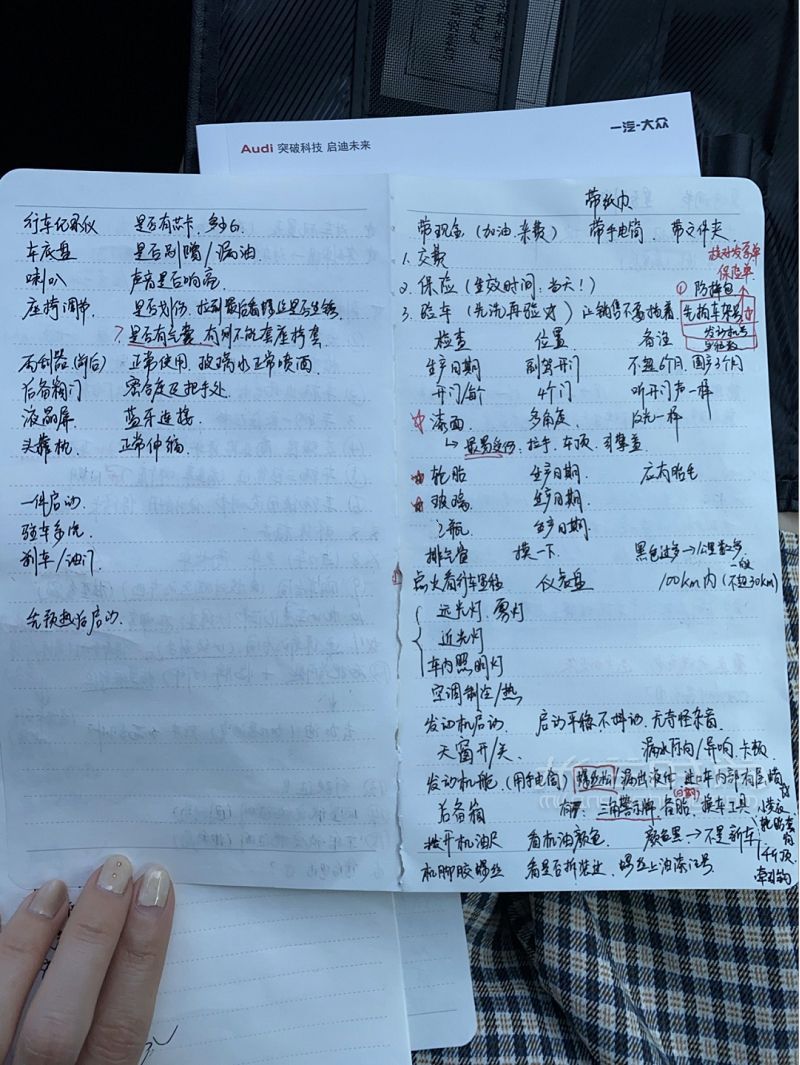 Audi 突破科技 启迪未来
一汽-大众
行车纪录仪 是否有芯卡, 多少G.
车底盘 是否剐蹭/漏油
喇叭 声音是否响亮
座椅调节 是否划伤, 拉到最后看螺丝是否生锈
? 是否有气囊, 有则不能套座椅套
雨刮器(前后) 正常使用, 玻璃水正常喷洒
后备箱门 密合度及把手处
液晶屏 蓝牙连接
头靠枕 正常伸缩
一件启动
驻车系统
刹车/油门
先预热后启动
带纸巾
带现金 (加油, 来费) 带手电筒 带文件夹
核对发票单
保险单
1. 交款
2. 保险 (生效时间: 当天!)
① 防掉包
3. 验车 (先洗再验收) 让销售不要贴着
先拍车架号
发动机号
检查 位置 备注
生产日期 副驾开门 不超6个月, 国产3个月
开门/每个 4个门 听开门声一样
☆ 漆面 多角度 反光一样
↳ 最易受伤, 拉手, 车顶, 引擎盖
☆ 轮胎 生产日期 应有胎毛
☆ 玻璃 生产日期
电瓶 生产日期
排气管 摸一下 黑色过多→公里数多
一般
点火看行车里程 仪表盘 100km内 (不超30km)
远光灯, 雾灯
近光灯
车内照明灯
空调制冷/热
发动机启动 启动平稳不抖动, 无奇怪杂音
天窗开/关 漏水, 异响, 卡顿
发动机舱 (用手电筒) 螺丝松/漏出液体
后备箱 有: 三角警示牌, 备胎, 换车工具
拔开机油尺 看机油颜色 颜色黑→不是新车
千斤顶
机脚胶螺丝 看是否拆装过, 螺丝上油漆记号
牵引钩